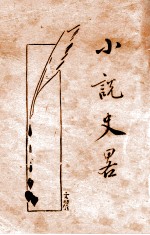 小說史畧